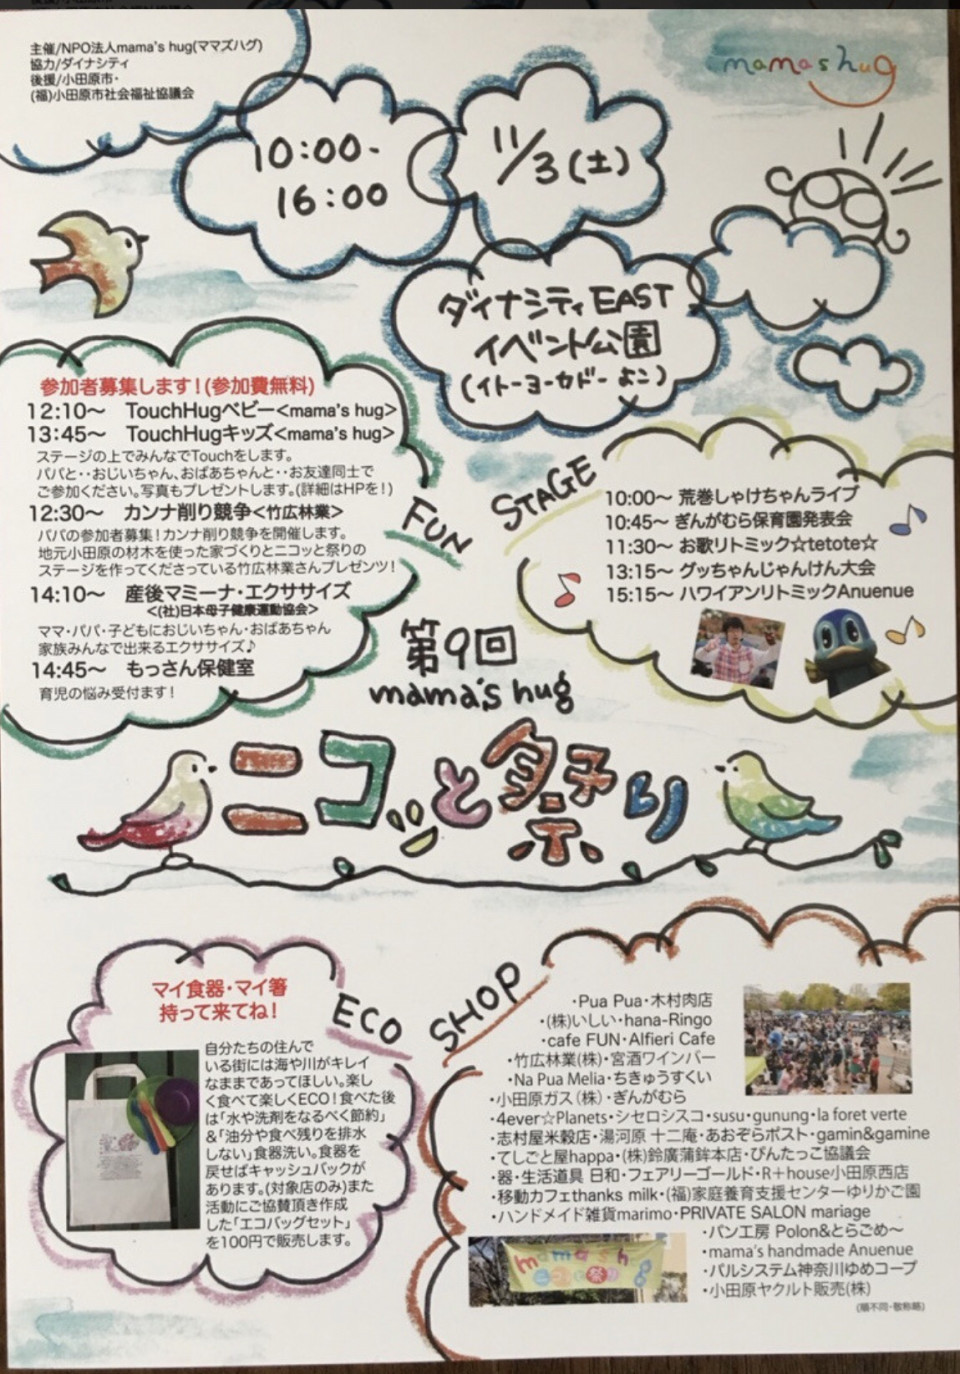 主催/NPO法人mama's hug(ママズハグ)
協力/ダイナシティ
後援/小田原市・
(福)小田原市社会福祉協議会
mamas hug
10:00-
16:00
11/3(土)
ダイナシティEAST
イベント公園
(イトーヨーカドーよこ)
参加者募集します！(参加費無料)
12:10〜 TouchHugベビー<mama's hug>
13:45〜 TouchHugキッズ<mama's hug>
ステージの上でみんなでTouchをします。
パパと‥おじいちゃん、おばあちゃんと‥お友達同士で
ご参加ください。写真もプレゼントします。(詳細はHPを！)
12:30〜 カンナ削り競争<竹広林業>
パパの参加者募集！カンナ削り競争を開催します。
地元小田原の材木を使った家づくりとニコッと祭りの
ステージを作ってくださっている竹広林業さんプレゼンツ！
14:10〜 産後マミーナ・エクササイズ
<(社)日本母子健康運動協会>
ママ・パパ・子どもにおじいちゃん・おばあちゃん
家族みんなで出来るエクササイズ♪
14:45〜 もっさん保健室
育児の悩み受付ます！
FUN
STAGE
10:00〜 荒巻しゃけちゃんライブ
10:45〜 ぎんがむら保育園発表会
11:30〜 お歌リトミック☆tetote☆
13:15〜 グッちゃんじゃんけん大会
15:15〜 ハワイアンリトミックAnuenue
第9回
mama's hug
ニコッと祭り
マイ食器・マイ箸
持って来てね！
ECO
自分たちの住んで
いる街には海や川がキレイ
なままであってほしい。楽し
く食べて楽しくECO！食べた後
は「水や洗剤をなるべく節約」
&「油分や食べ残りを排水
しない」食器洗い。食器を
戻せばキャッシュバックが
あります。(対象店のみ)また
活動にご協賛頂き作成
した「エコバッグセット」
を100円で販売します。
SHOP
・Pua Pua・木村肉店
・(株)いしい・hana-Ringo
・cafe FUN・Alfieri Cafe
・竹広林業(株)・宮酒ワインバー
・Na Pua Melia・ちきゅうすくい
・小田原ガス(株)・ぎんがむら
・4ever☆Planets・シセロシスコ・susu・gunung・la foret verte
・志村屋米穀店・湯河原 十二庵・あおぞらポスト・gamin&gamine
・てしごと屋happa・(株)鈴廣蒲鉾本店・ぴんたっこ協議会
・器・生活道具 日和・フェアリーゴールド・R＋house小田原西店
・移動カフェthanks milk・(福)家庭養育支援センターゆりかご園
・ハンドメイド雑貨marimo・PRIVATE SALON mariage
・パン工房 Polon&とらごめ〜
・mama's handmade Anuenue
・パルシステム神奈川ゆめコープ
・小田原ヤクルト販売(株)
(順不同・敬称略)
mama's h
ニコッと祭り